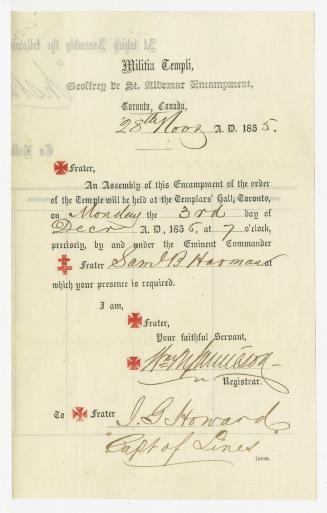 Militia Templi,
Geoffrey de St. Aldemar Encampment,
Toronto, Canada,
28th Novr A. D. 1855.
Frater,
An Assembly of this Encampment of the order
of the Temple will be held at the Templars' Hall, Toronto,
on Monday the 3rd day of
Decr A. D. 1855, at 7 o'clock,
precisely, by and under the Eminent Commander
Frater Saml B Harman at
which your presence is required.
I am,
Frater,
Your faithful Servant,
Registrar.
To Frater J. G. Howard
"Capt of Lines"